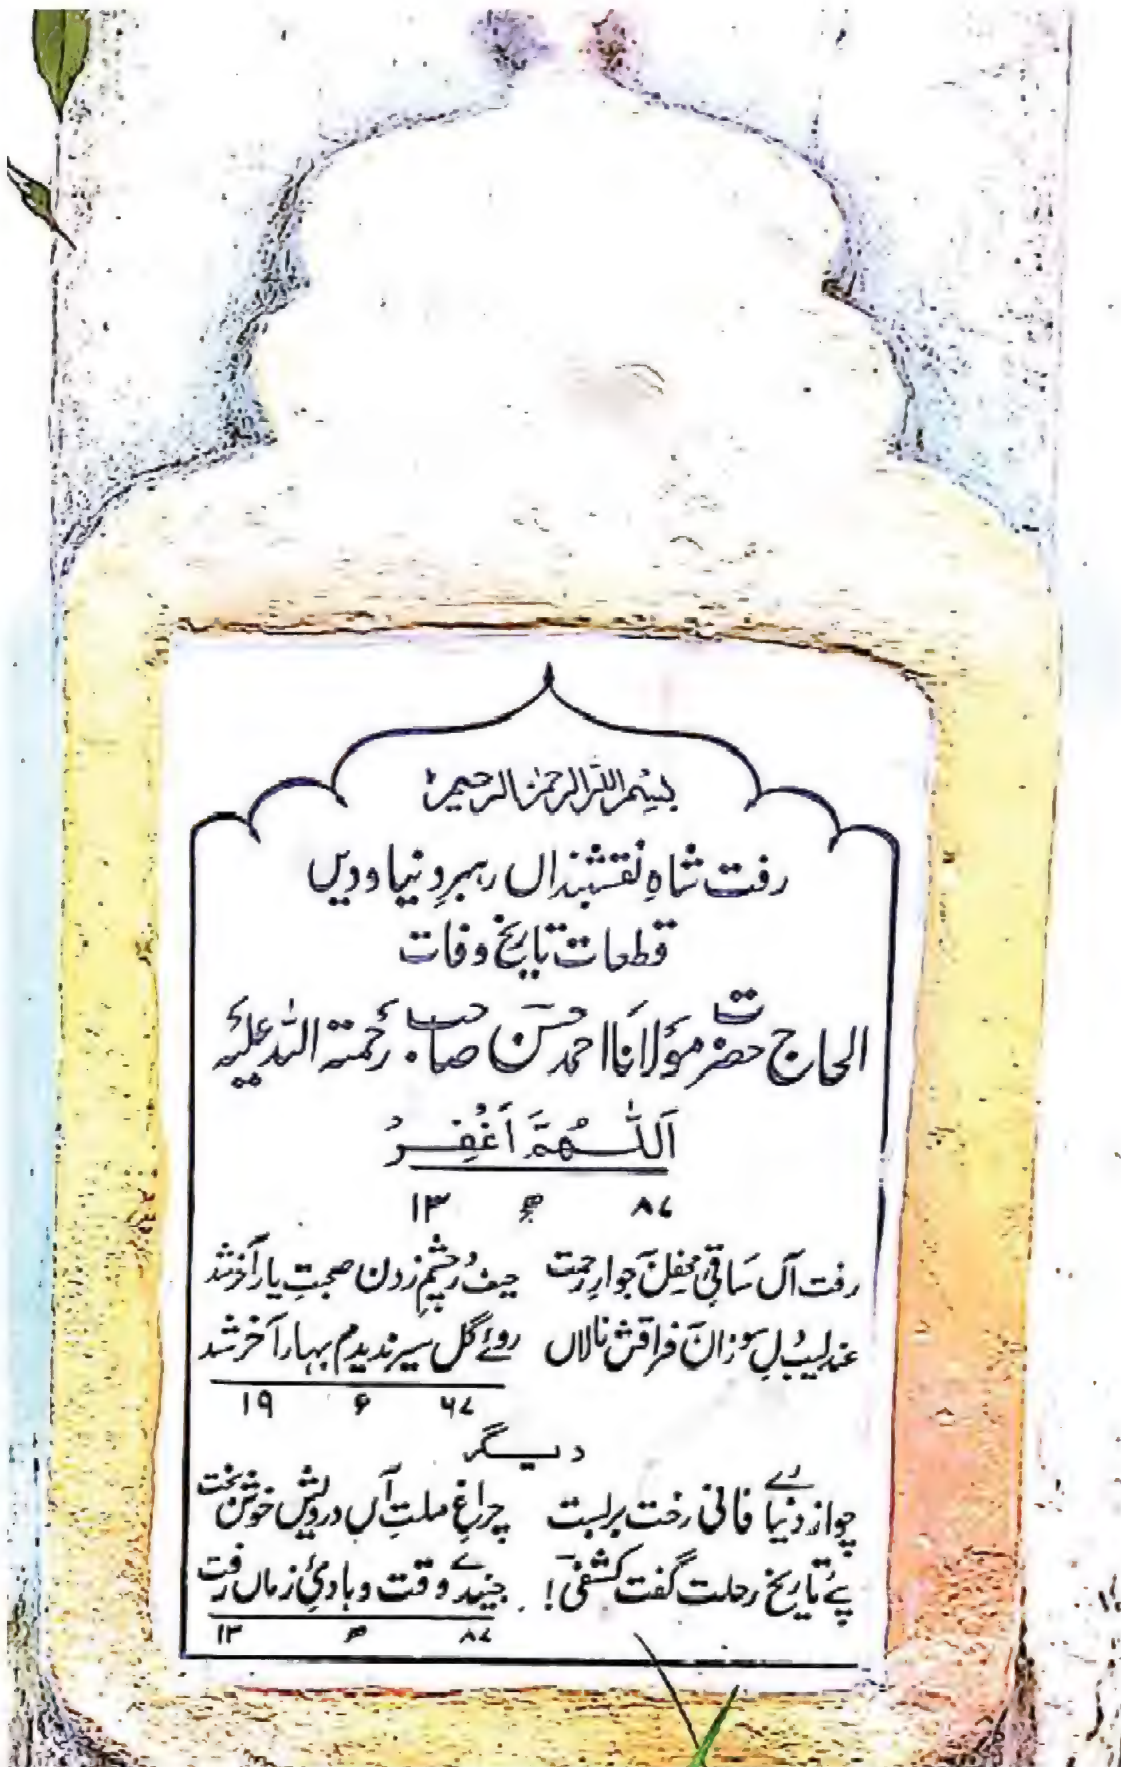 بسم الله الرحمٰن الرحیم
رفت شاہِ نقشبنداں رہبرِ دنیا و دیں
قطعات تاریخ وفات
الحاج حضرت مولانا احمد حسن صاحب رحمۃ اللہ علیہ
اَللّٰہُمَّ اَغْفِرُ
۱۳ ھ ۸۷
رفت آں ساقیِ محفل جوارِ رحمت حیف در چشم زدن صحبتِ یار آخر شد
عندلیب دل سوزاں فراقش نالاں روئے گل سیر ندیدم بہار آخر شد
۱۹ ۶ ۶۷
دیگر
چو از دنیائے فانی رخت بر بست چراغِ ملت آں درویش خوش بخت
پئے تاریخ رحلت گفت کشفی! جنیدے وقت و ہادئ زماں رفت
۱۳ ھ ۸۷